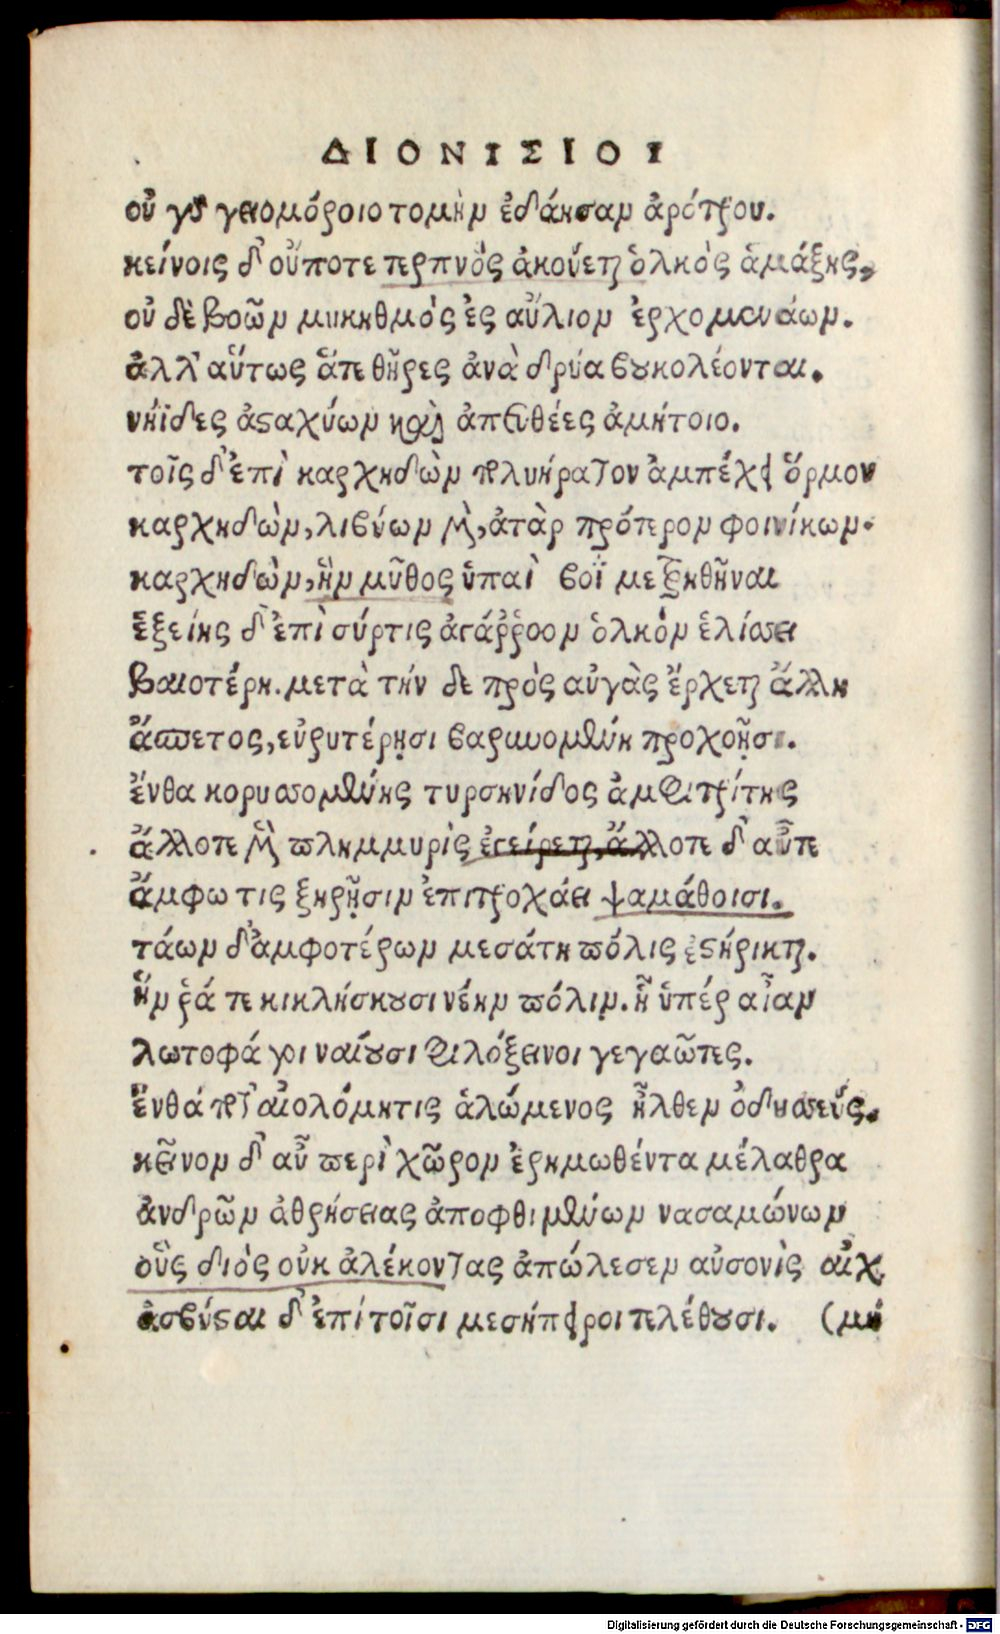 ΔΙΟΝΙΣΙΟΙ
οὐ γὰρ γειομόροιο τομὴν ἐδάησαν ἀρότρου.
κείνοις δ' οὔποτε τερπνὸς ἀκούεται ὁλκὸς ἁμάξης,
οὐ δὲ βοῶν μυκηθμὸς ἐς αὔλιον ἐρχομενάων.
ἀλλ' αὕτως ἅτε θῆρες ἀνὰ δρύα βουκολέονται.
νήϊδες ἀσταχύων καὶ ἀπειθέες ἀμήτοιο.
τοῖς δ' ἐπὶ καρχηδὼν πολυήρατον ἀμπέχει ὅρμον
καρχηδὼν, λιβύων μὲν, ἀτὰρ πρότερον φοινίκων.
καρχηδὼν, ἣν μῦθος ὑπαὶ βοῒ μετρηθῆναι
ἑξείης δ' ἐπὶ σύρτις ἀγάρροον ὁλκὸν ἑλίσσει
βαιοτέρη. μετὰ τήν δε πρὸς αὐγὰς ἔρχεται ἄλλη
ἄσπετος, εὐρυτέρῃσι βαρυνομένη προχοῇσι.
ἔνθα κορυσσομένης τυρσηνίδος ἀμφιτρίτης
ἄλλοτε μὲν πλημμυρὶς ἐγείρεται, ἄλλοτε δ' αὖτε
ἄμφωτις ξηρῇσιν ἐπιτροχάει ψαμάθοισι.
τάων δ' ἀμφοτέρων μεσάτη πόλις ἐστήρικται.
ἥν ῥά τε κικλήσκουσι νέην πόλιν. ἧ ὑπέρ αἶαν
λωτοφάγοι ναίουσι φιλόξεινοι γεγαῶτες.
ἔνθά ποτ' αἰολόμητις ἁλώμενος ἦλθεν ὀδυσσεύς.
κεῖνον δ' αὖ περὶ χῶρον ἐρημωθέντα μέλαθρα
ἀνδρῶν ἀθρήσειας ἀποφθιμένων νασαμώνων
οὓς διὸς οὐκ ἀλέκοντας ἀπώλεσεν αὐσονὶς αἰχ
ἀσβύσται δ' ἐπί τοῖσι μεσήπειροι τελέθουσι. (μή
Digitalisierung gefördert durch die Deutsche Forschungsgemeinschaft - DFG